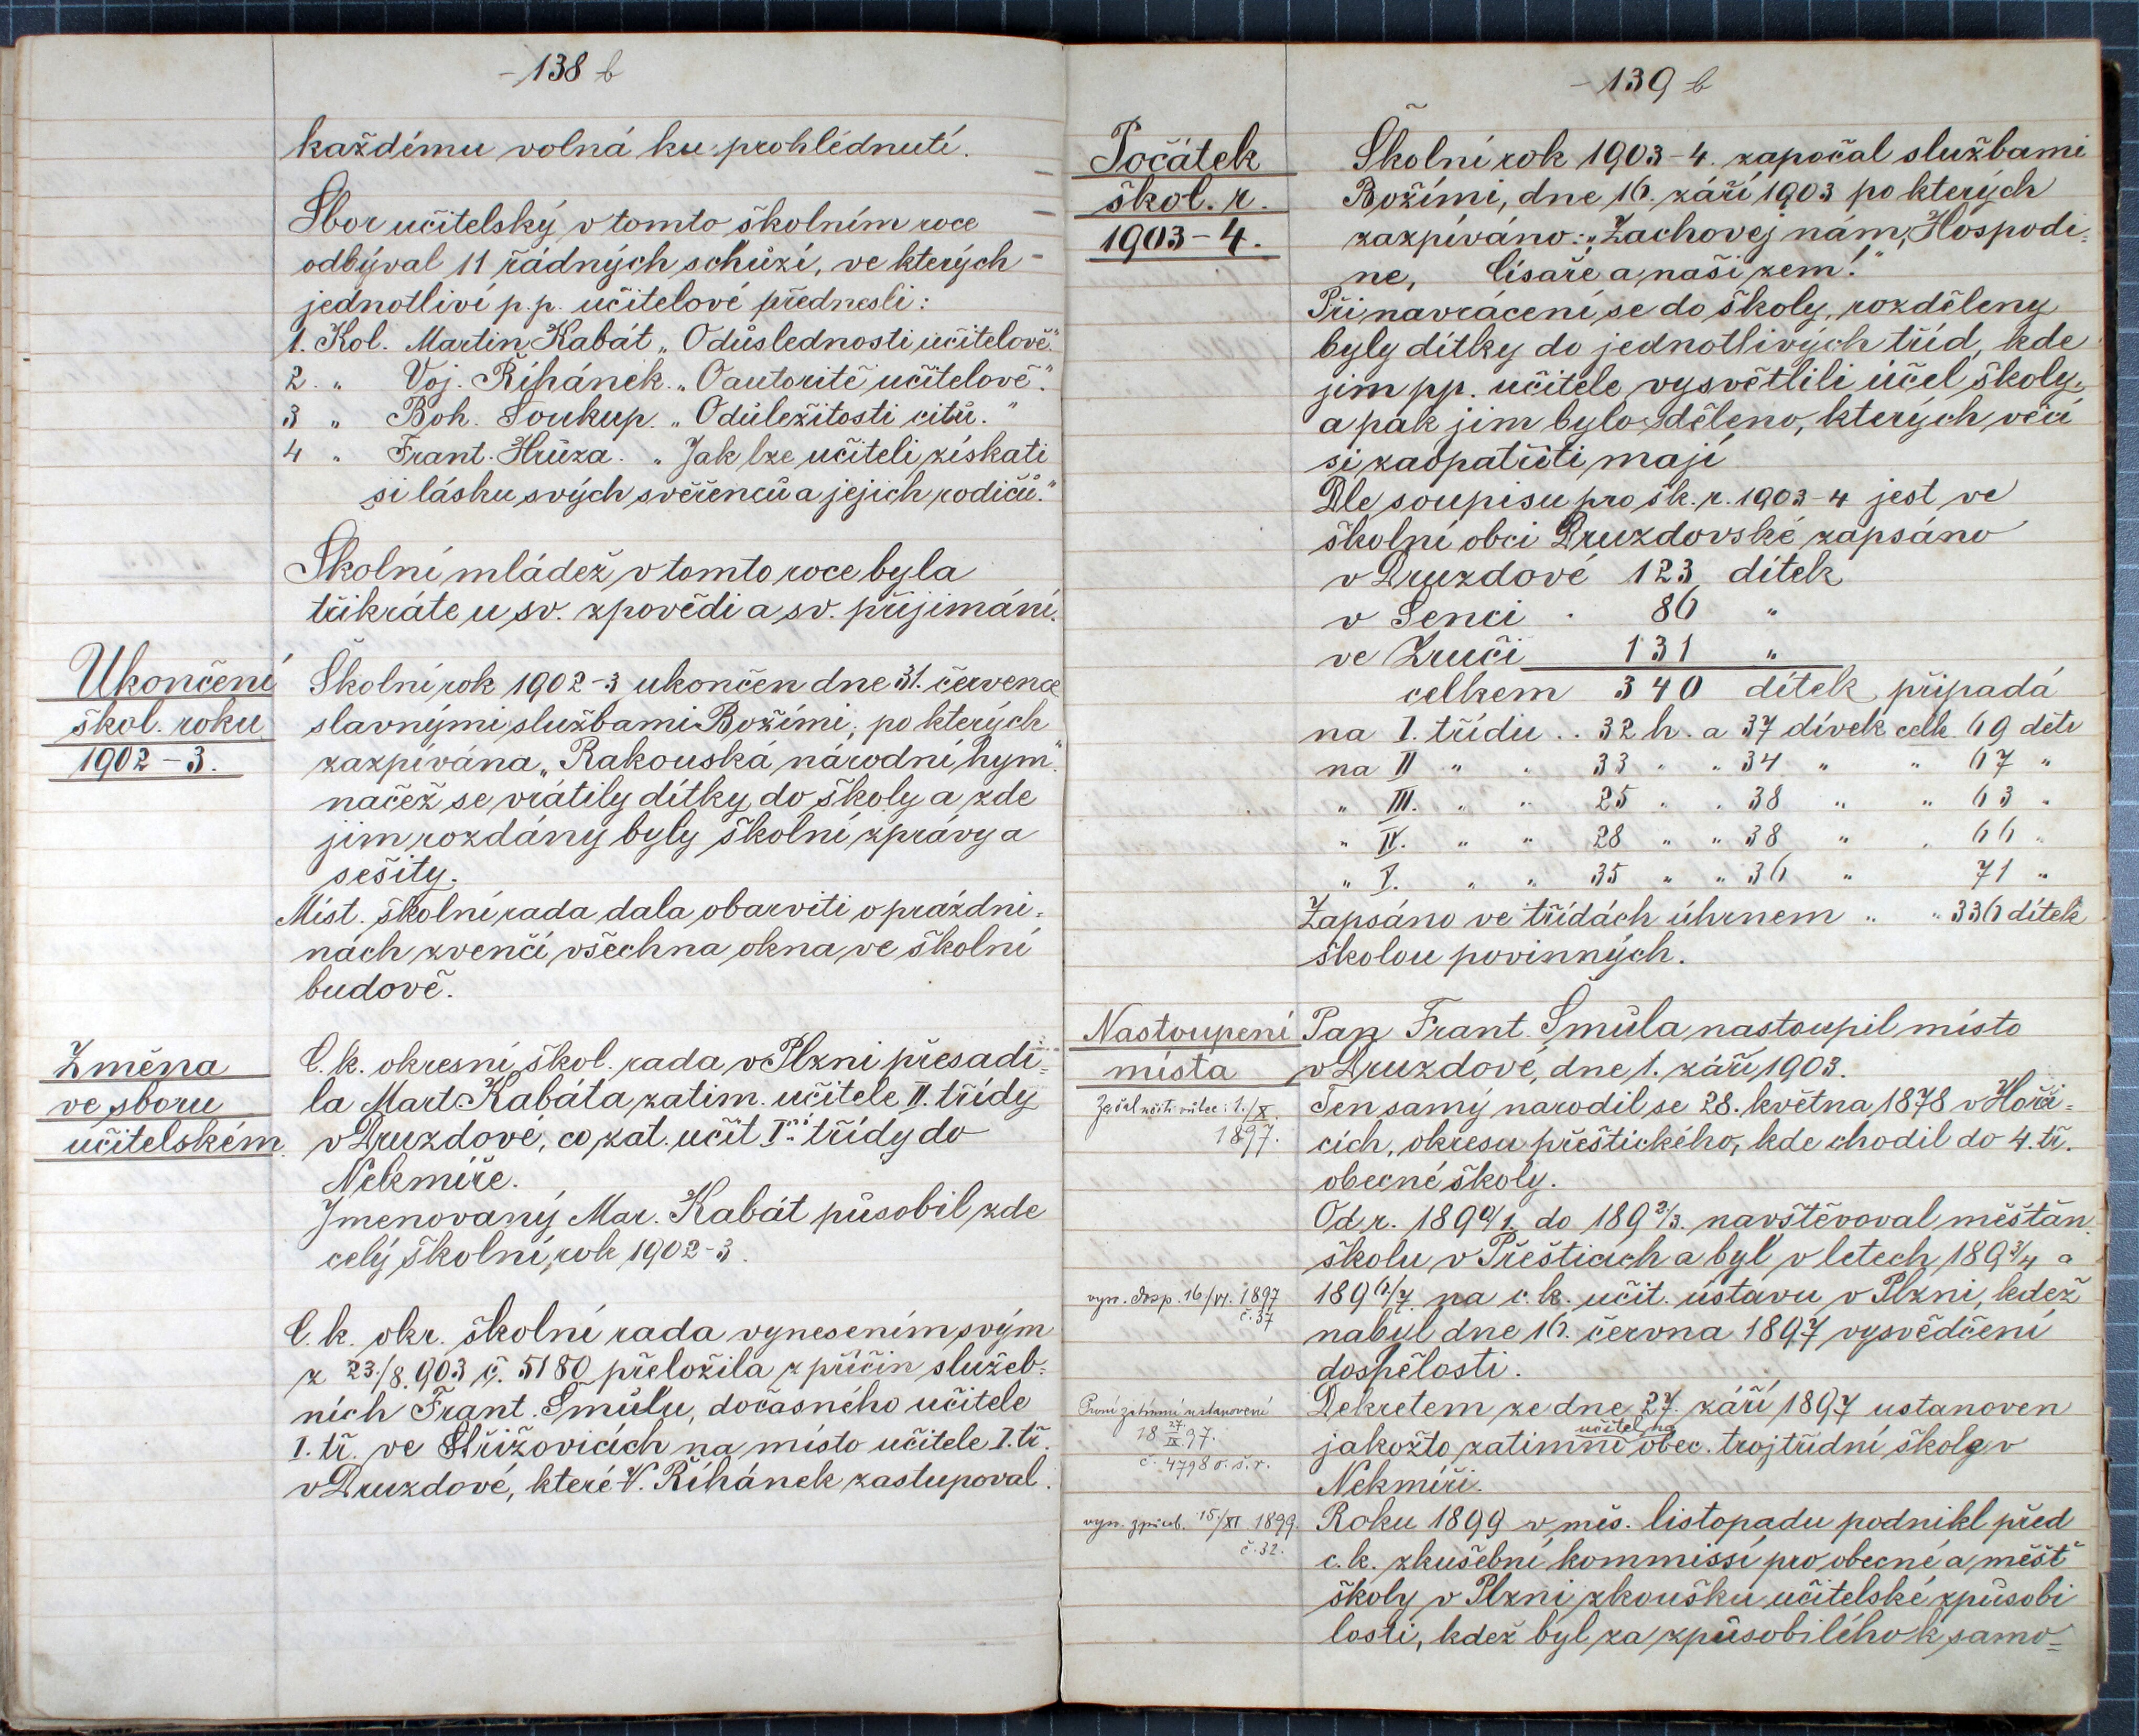 -138 b
každému volná ku prohlédnutí.
Sbor učitelský v tomto školním roce
odbýval 11 řádných schůzí, ve kterých
jednotliví p.p. učitelové přednesli:
1. Kol. Martin Kabát „O důslednosti učitelově."
2. „ Voj. Říhánek. „O autoritě učitelově."
3 „ Boh. Soukup. „O důležitosti citů."
4 „ Frant. Hrůza. „Jak lze učiteli získati
si lásku svých svěřenců a jejich rodičů."
Školní mládež v tomto roce byla
třikráte u sv. zpovědi a sv. přijímání.
Ukončení
škol. roku
1902-3.
Školní rok 1902-3 ukončen dne 31. července
slavnými službami Božími, po kterých
zazpívána „Rakouská národní hym."
načež se vrátily dítky do školy a zde
jim rozdány byly školní zprávy a
sešity.
Míst. školní rada dala obarviti o prázdni=
nách zvenčí všechna okna ve školní
budově.
Změna
ve sboru
učitelském.
C. k. okresní škol. rada v Plzni přesadi=
la Mart. Kabáta zatím. učitele II. třídy
v Druzdové, co zat. učit I. třídy do
Nekmíře.
Jmenovaný Mar. Kabát působil zde
celý školní rok 1902-3.
C. k. okr. školní rada vynesením svým
z 23./8. 903 č. 5180 přeložila z příčin služeb=
ních Frant. Šmůlu, dočasného učitele
I. tř. ve Střížovicích na místo učitele I. tř.
v Druzdové, které V. Říhánek zastupoval.
-139 b
Počátek
škol. r.
1903-4.
Školní rok 1903-4. započal službami
Božími, dne 16. září 1903 po kterých
zazpíváno: „Zachovej nám, Hospodi=
ne, císaře a naši zem!"
Při navrácení se do školy, rozděleny
byly dítky do jednotlivých tříd, kde
jim pp. učitele vysvětlili účel školy,
a pak jim bylo sděleno, kterých věcí
si zaopatřiti mají
Dle soupisu pro šk. r. 1903-4 jest ve
školní obci Druzdovské zapsáno
v Druzdové 123 dítek
v Senci . 86 „
ve Zruči 131 „
celkem 340 dítek připadá
na I. třídu .. 32 h. a 37 dívek celk. 69 dětí
na II „ „ 33 „ „ 34 „ „ 67 „
„ III. „ „ 25 „ „ 38 „ „ 63 „
„ IV. „ „ 28 „ „ 38 „ „ 66 „
„ V. „ „ 35 „ „ 36 „ 71 „
Zapsáno ve třídách úhrnem „ „ 336 dítek
školou povinných.
Nastoupení
místa
Pan Frant. Šmůla nastoupil místo
v Druzdové, dne 1. září 1903.
Začal učiti vůbec: 1./X.
1897.
Ten samý narodil se 28. května 1878 v Hoři=
cích, okresu přeštického, kde chodil do 4. tř.
obecné školy.
Od r. 1890/1. do 1892/3. navštěvoval měšťan.
školu v Přešticích a byl v letech 1893/4 a
vysv. dosp. 16/VI. 1897
č. 37
1896/7. na c. k. učit. ústavu v Plzni, kdež
nabyl dne 16. června 1897 vysvědčení
dospělosti.
První zatímní ustanovení
18 27/IX 97.
č. 4798 o. š. r.
Dekretem ze dne 27. září 1897 ustanoven
učitel na
jakožto zatímní obec. trojtřídní školy v
Nekmíři.
vysv. způsob. 15/XI 1899.
č. 32.
Roku 1899 v měs. listopadu podnikl před
c. k. zkušební kommissí pro obecné a měšť
školy v Plzni zkoušku učitelské způsobi
losti, kdež byl za způsobilého k samo=